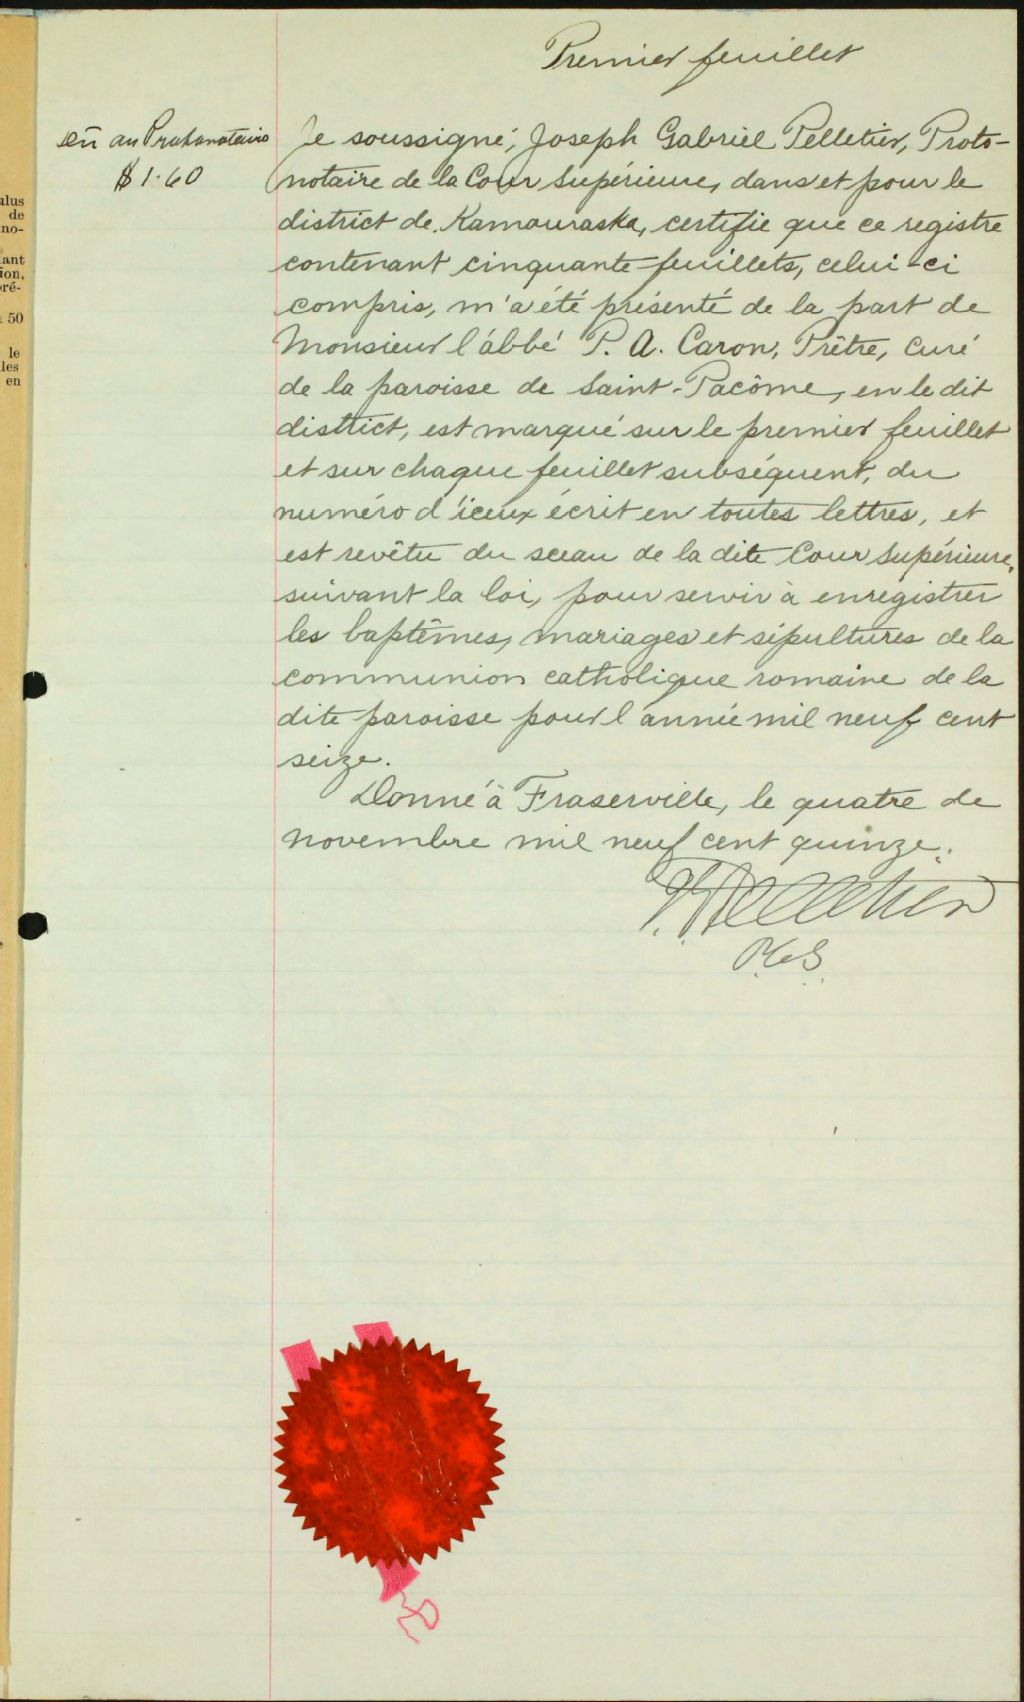 Premier feuillet
au Protonotaire
$1.60
Je soussigné, Joseph Gabriel Pelletier, Proto-
notaire de la Cour Supérieure, dans et pour le
district de Kamouraska, certifie que ce registre
contenant cinquante feuillets, celui-ci
compris, m'a été présenté de la part de
Monsieur l'abbé P. A. Caron, Prêtre, curé
de la paroisse de Saint-Pacôme, en le dit
district, est marqué sur le premier feuillet
et sur chaque feuillet subséquent, du
numéro d'iceux écrit en toutes lettres, et
est revêtu du sceau de la dite Cour Supérieure,
suivant la loi, pour servir à enregistrer
les baptêmes, mariages et sépultures de la
communion catholique romaine de la
dite paroisse pour l'année mil neuf cent
seize.
Donné à Fraserville, le quatre de
novembre mil neuf cent quinze.
Pelletier
P.C.S.
ulus
de
no-
ant
ion,
ré-
50
le
les
en